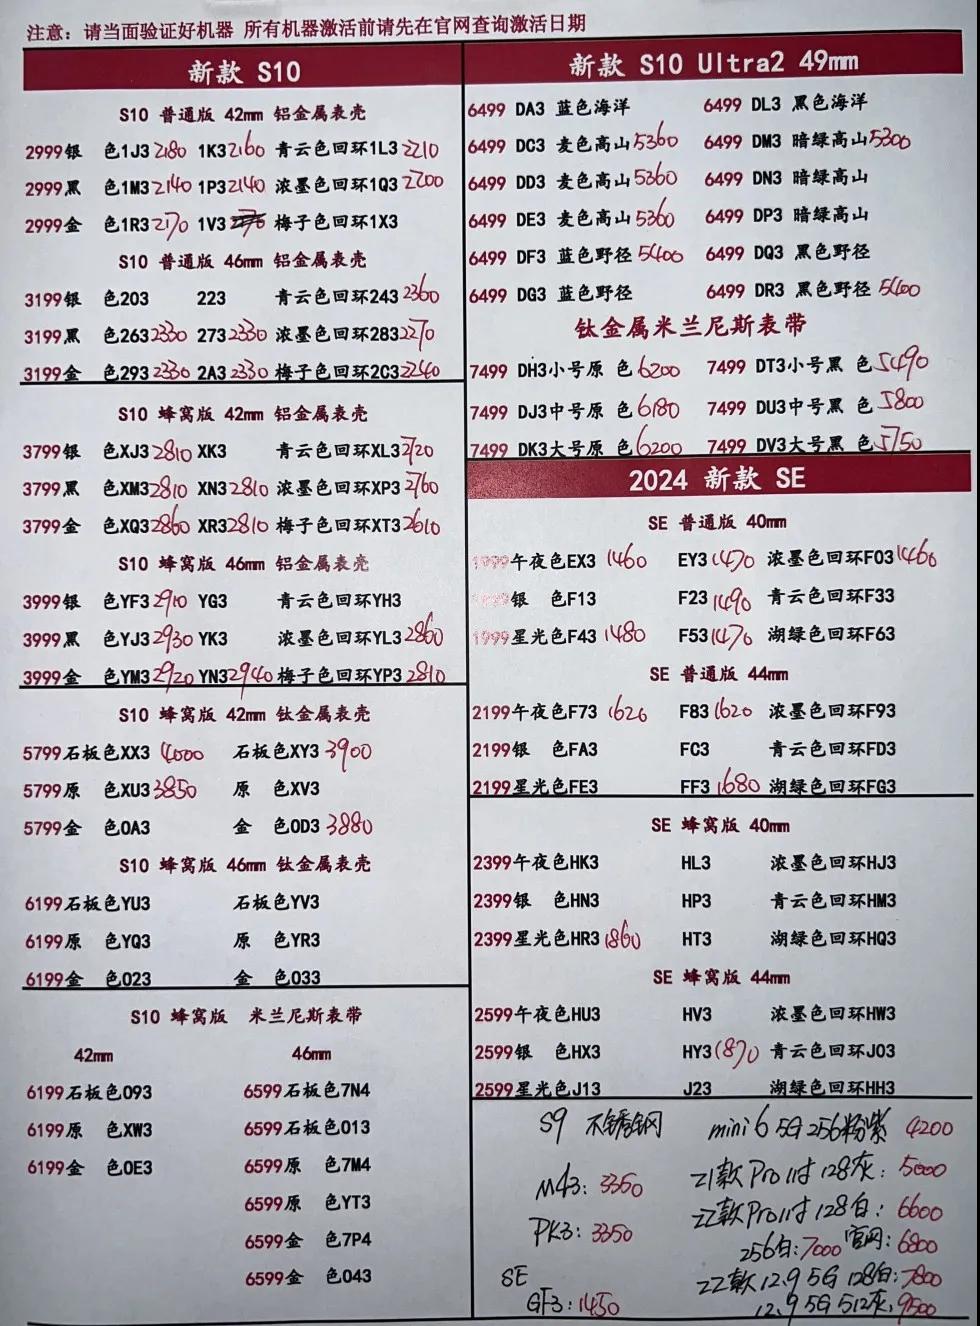 注意：请当面验证好机器 所有机器激活前请先在官网查询激活日期
新款 S10
S10 普通版 42mm 铝金属表壳
2999银 色1J3 2180 1K3 2160 青云色回环1L3 2210
2999黑 色1M3 2140 1P3 2140 浓墨色回环1Q3 2200
2999金 色1R3 2170 1V3 梅子色回环1X3
S10 普通版 46mm 铝金属表壳
3199银 色203 223 青云色回环243 2360
3199黑 色263 2330 273 2330 浓墨色回环283 2270
3199金 色293 2330 2A3 2330 梅子色回环2C3 2240
S10 蜂窝版 42mm 铝金属表壳
3799银 色XJ3 2810 XK3 青云色回环XL3 2720
3799黑 色XM3 2810 XN3 2810 浓墨色回环XP3 2760
3799金 色XQ3 2860 XR3 2810 梅子色回环XT3 2610
S10 蜂窝版 46mm 铝金属表壳
3999银 色YF3 2910 YG3 青云色回环YH3
3999黑 色YJ3 2930 YK3 浓墨色回环YL3 2860
3999金 色YM3 2920 YN3 2940 梅子色回环YP3 2810
S10 蜂窝版 42mm 钛金属表壳
5799石板色XX3 4000 石板色XY3 3900
5799原 色XU3 3850 原 色XV3
5799金 色0A3 金 色0D3 3880
S10 蜂窝版 46mm 钛金属表壳
6199石板色YU3 石板色YV3
6199原 色YQ3 原 色YR3
6199金 色023 金 色033
S10 蜂窝版 米兰尼斯表带
42mm 46mm
6199石板色093 6599石板色7N4
6199原 色XW3 6599石板色013
6199金 色0E3 6599原 色7M4
6599原 色YT3
6599金 色7P4
6599金 色043
新款 S10 Ultra2 49mm
6499 DA3 蓝色海洋 6499 DL3 黑色海洋
6499 DC3 麦色高山 5360 6499 DM3 暗绿高山 5300
6499 DD3 麦色高山 5360 6499 DN3 暗绿高山
6499 DE3 麦色高山 5360 6499 DP3 暗绿高山
6499 DF3 蓝色野径 5400 6499 DQ3 黑色野径
6499 DG3 蓝色野径 6499 DR3 黑色野径 5400
钛金属米兰尼斯表带
7499 DH3小号原 色 6200 7499 DT3小号黑 色 5490
7499 DJ3中号原 色 6180 7499 DU3中号黑 色 5800
7499 DK3大号原 色 6200 7499 DV3大号黑 色 5750
2024 新款 SE
SE 普通版 40mm
1999午夜色EX3 1460 EY3 1470 浓墨色回环F03 1460
银 色F13 F23 1490 青云色回环F33
1999星光色F43 1480 F53 1470 湖绿色回环F63
SE 普通版 44mm
2199午夜色F73 1620 F83 1620 浓墨色回环F93
2199银 色FA3 FC3 青云色回环FD3
2199星光色FE3 FF3 1680 湖绿色回环FG3
SE 蜂窝版 40mm
2399午夜色HK3 HL3 浓墨色回环HJ3
2399银 色HN3 HP3 青云色回环HM3
2399星光色HR3 1860 HT3 湖绿色回环HQ3
SE 蜂窝版 44mm
2599午夜色HU3 HV3 浓墨色回环HW3
2599银 色HX3 HY3 1870 青云色回环J03
2599星光色J13 J23 湖绿色回环HH3
S9 不锈钢 mini6 5G 256粉紫 4200
M43: 3350 21款Pro11寸 128灰: 5000
PK3: 3350 22款Pro11寸 128白: 6600
256白:7000 官网: 6800
SE 22款12.9 5G 128白:7800
GF3: 1450 12.9 5G 512灰: 9500